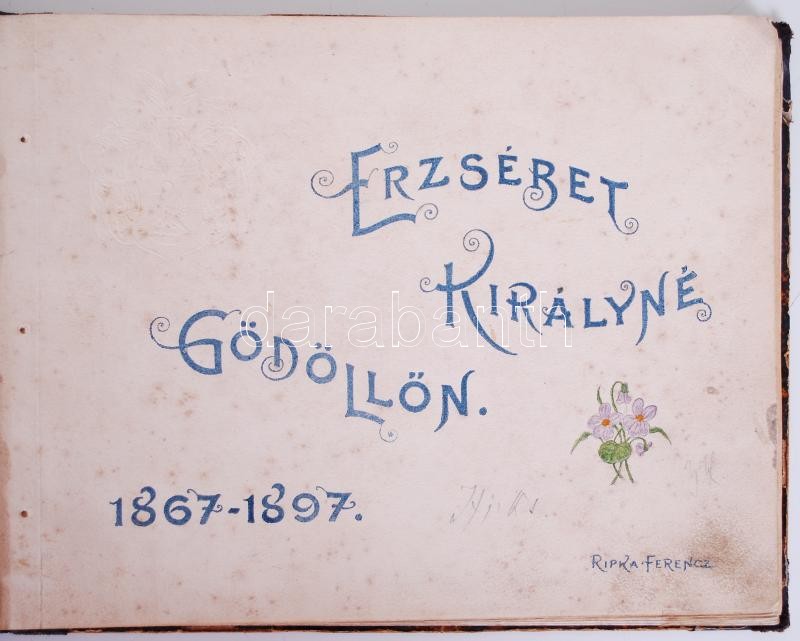 ERZSÉBET
KIRÁLYNÉ
GÖDÖLLŐN.
1867-1897.
RIPKA FERENCZ
darabanth